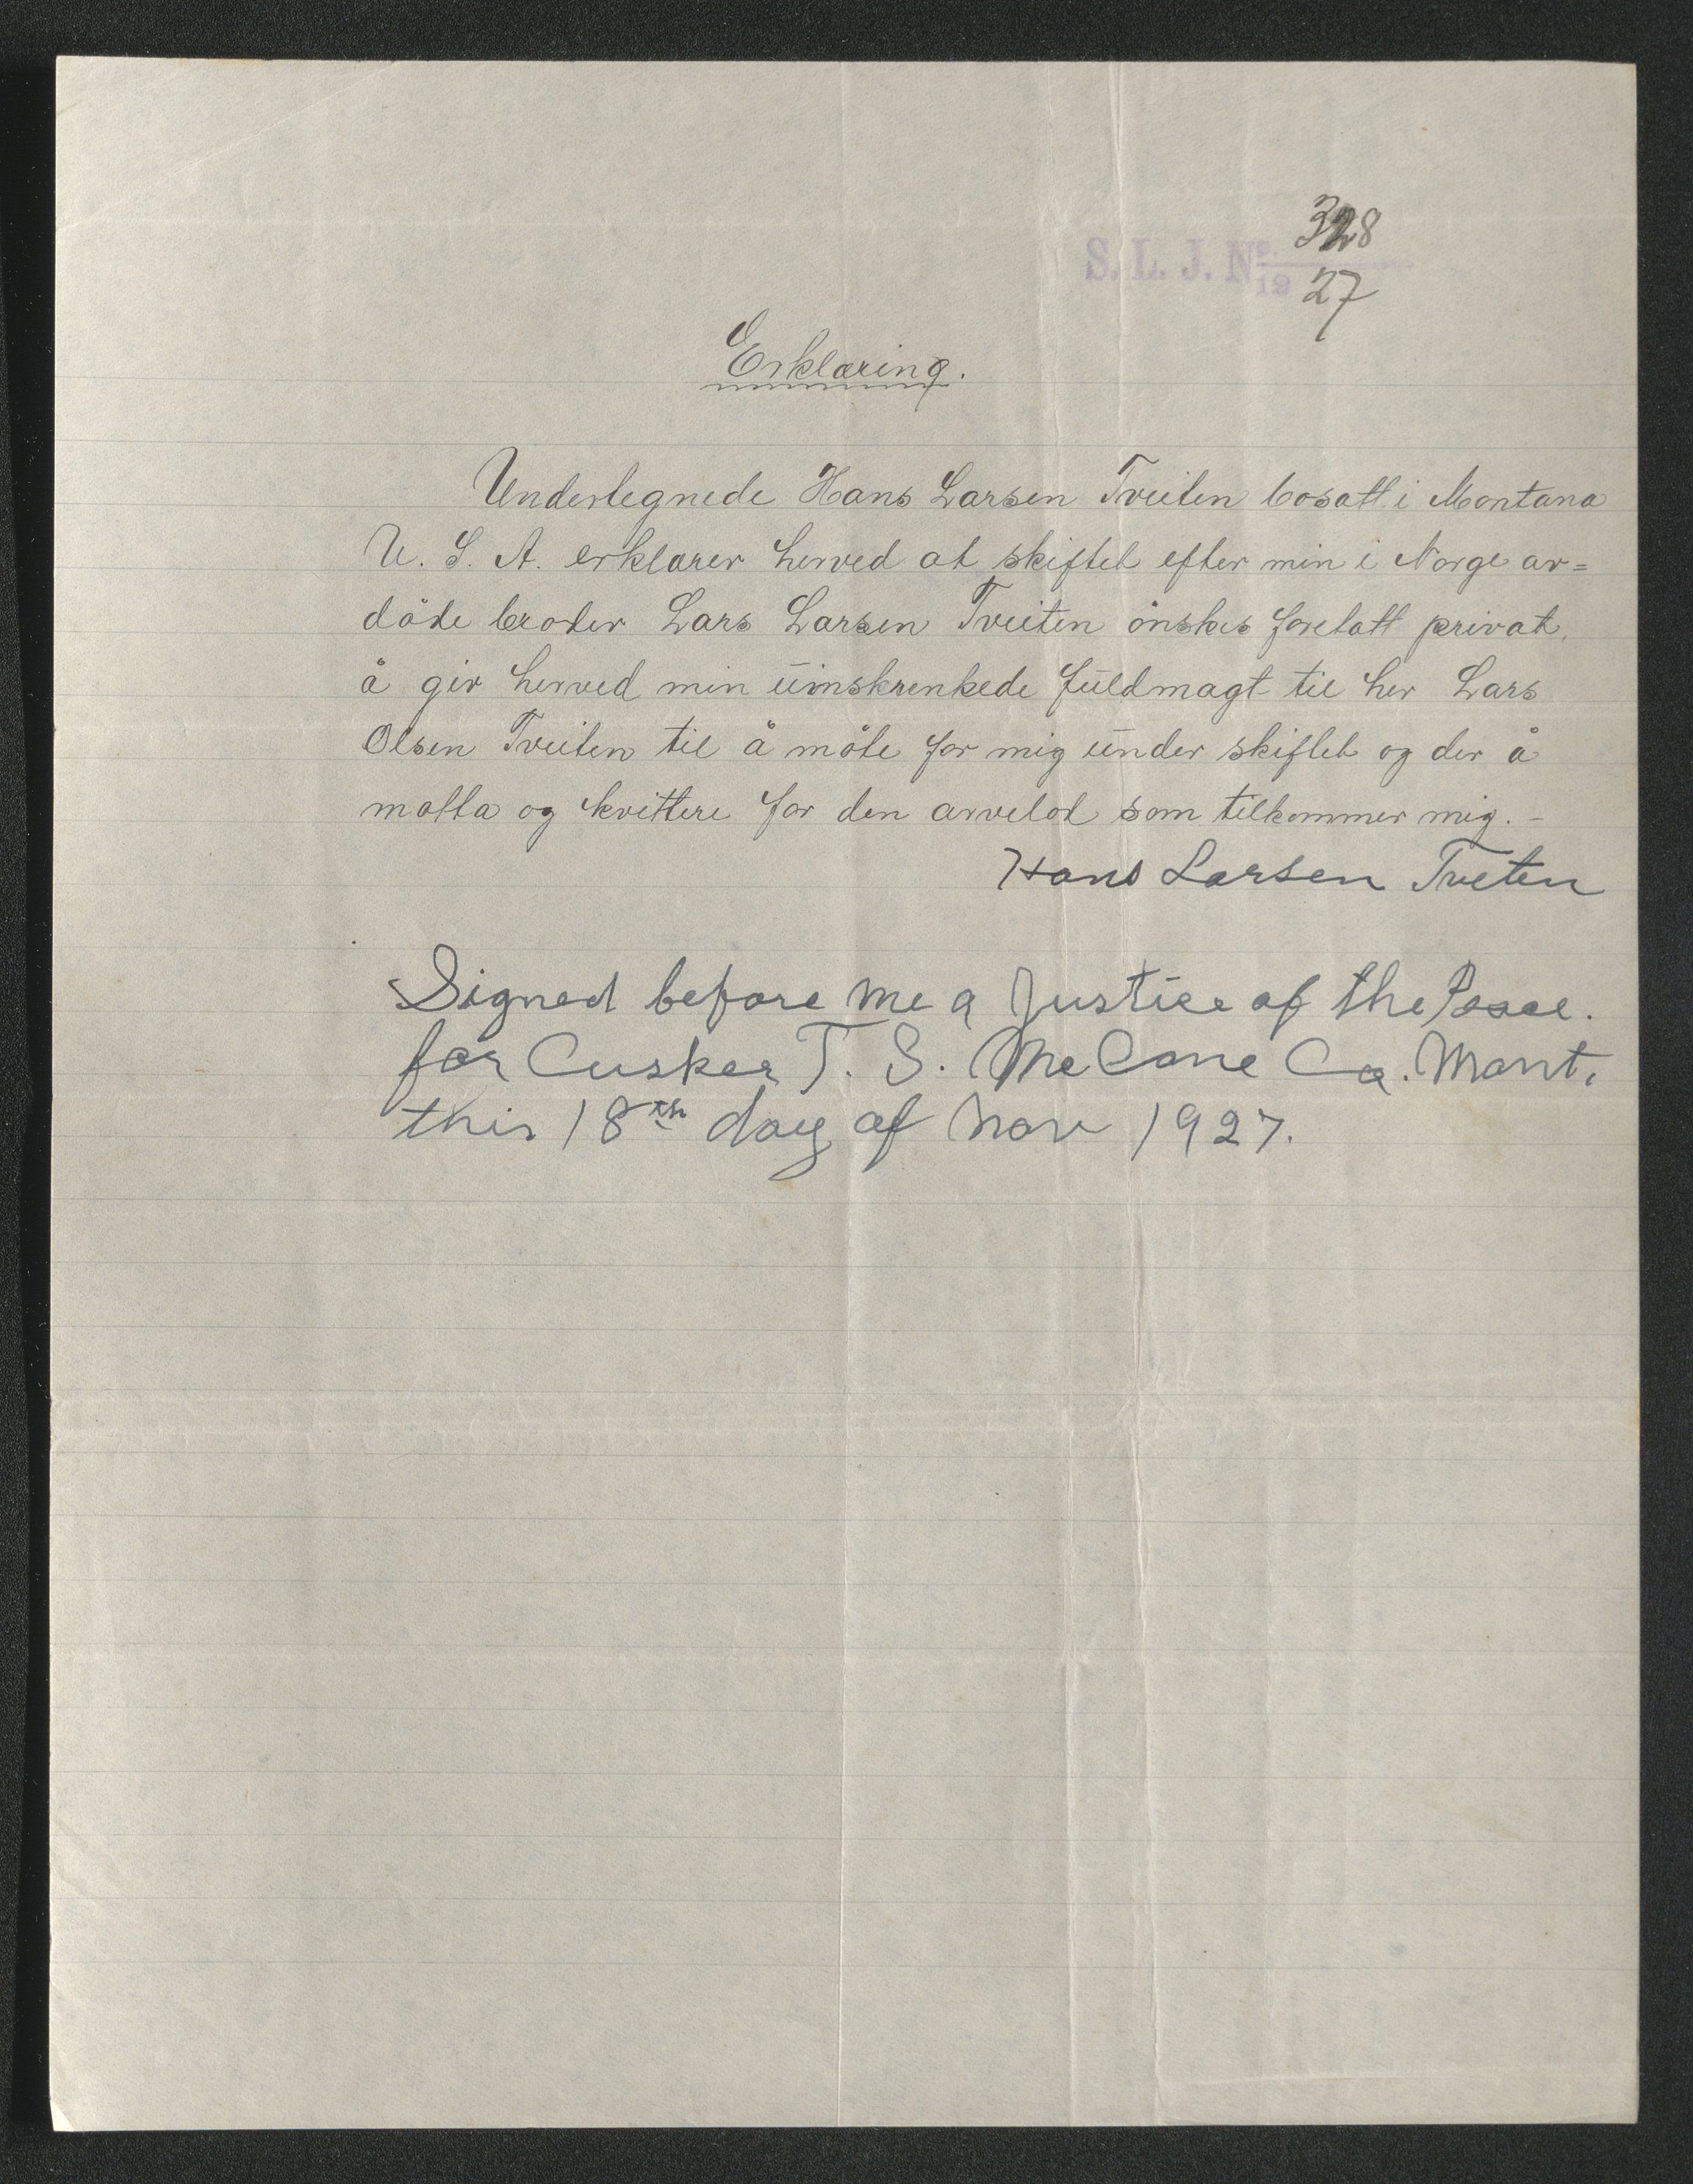 328
S. L. J. No.
19 27
Erklæring.
Undertegnede Hans Larsen Tveiten bosatt i Montana
U. S. A. erklærer herved at skiftet efter min i Norge av=
døde broder Lars Larsen Tveiten ønskes foretatt privat,
å gir herved min uinskrenkede fuldmagt til her Lars
Olsen Tveiten til å møte for mig under skiftet og der å
motta og kvittere for den arvelod som tilkommer mig. -
Hans Larsen Tveten
Signed before me a Justice of the Peace.
for Cusker T. S. McCone Co. Mont.
this 18th day of Nov 1927.